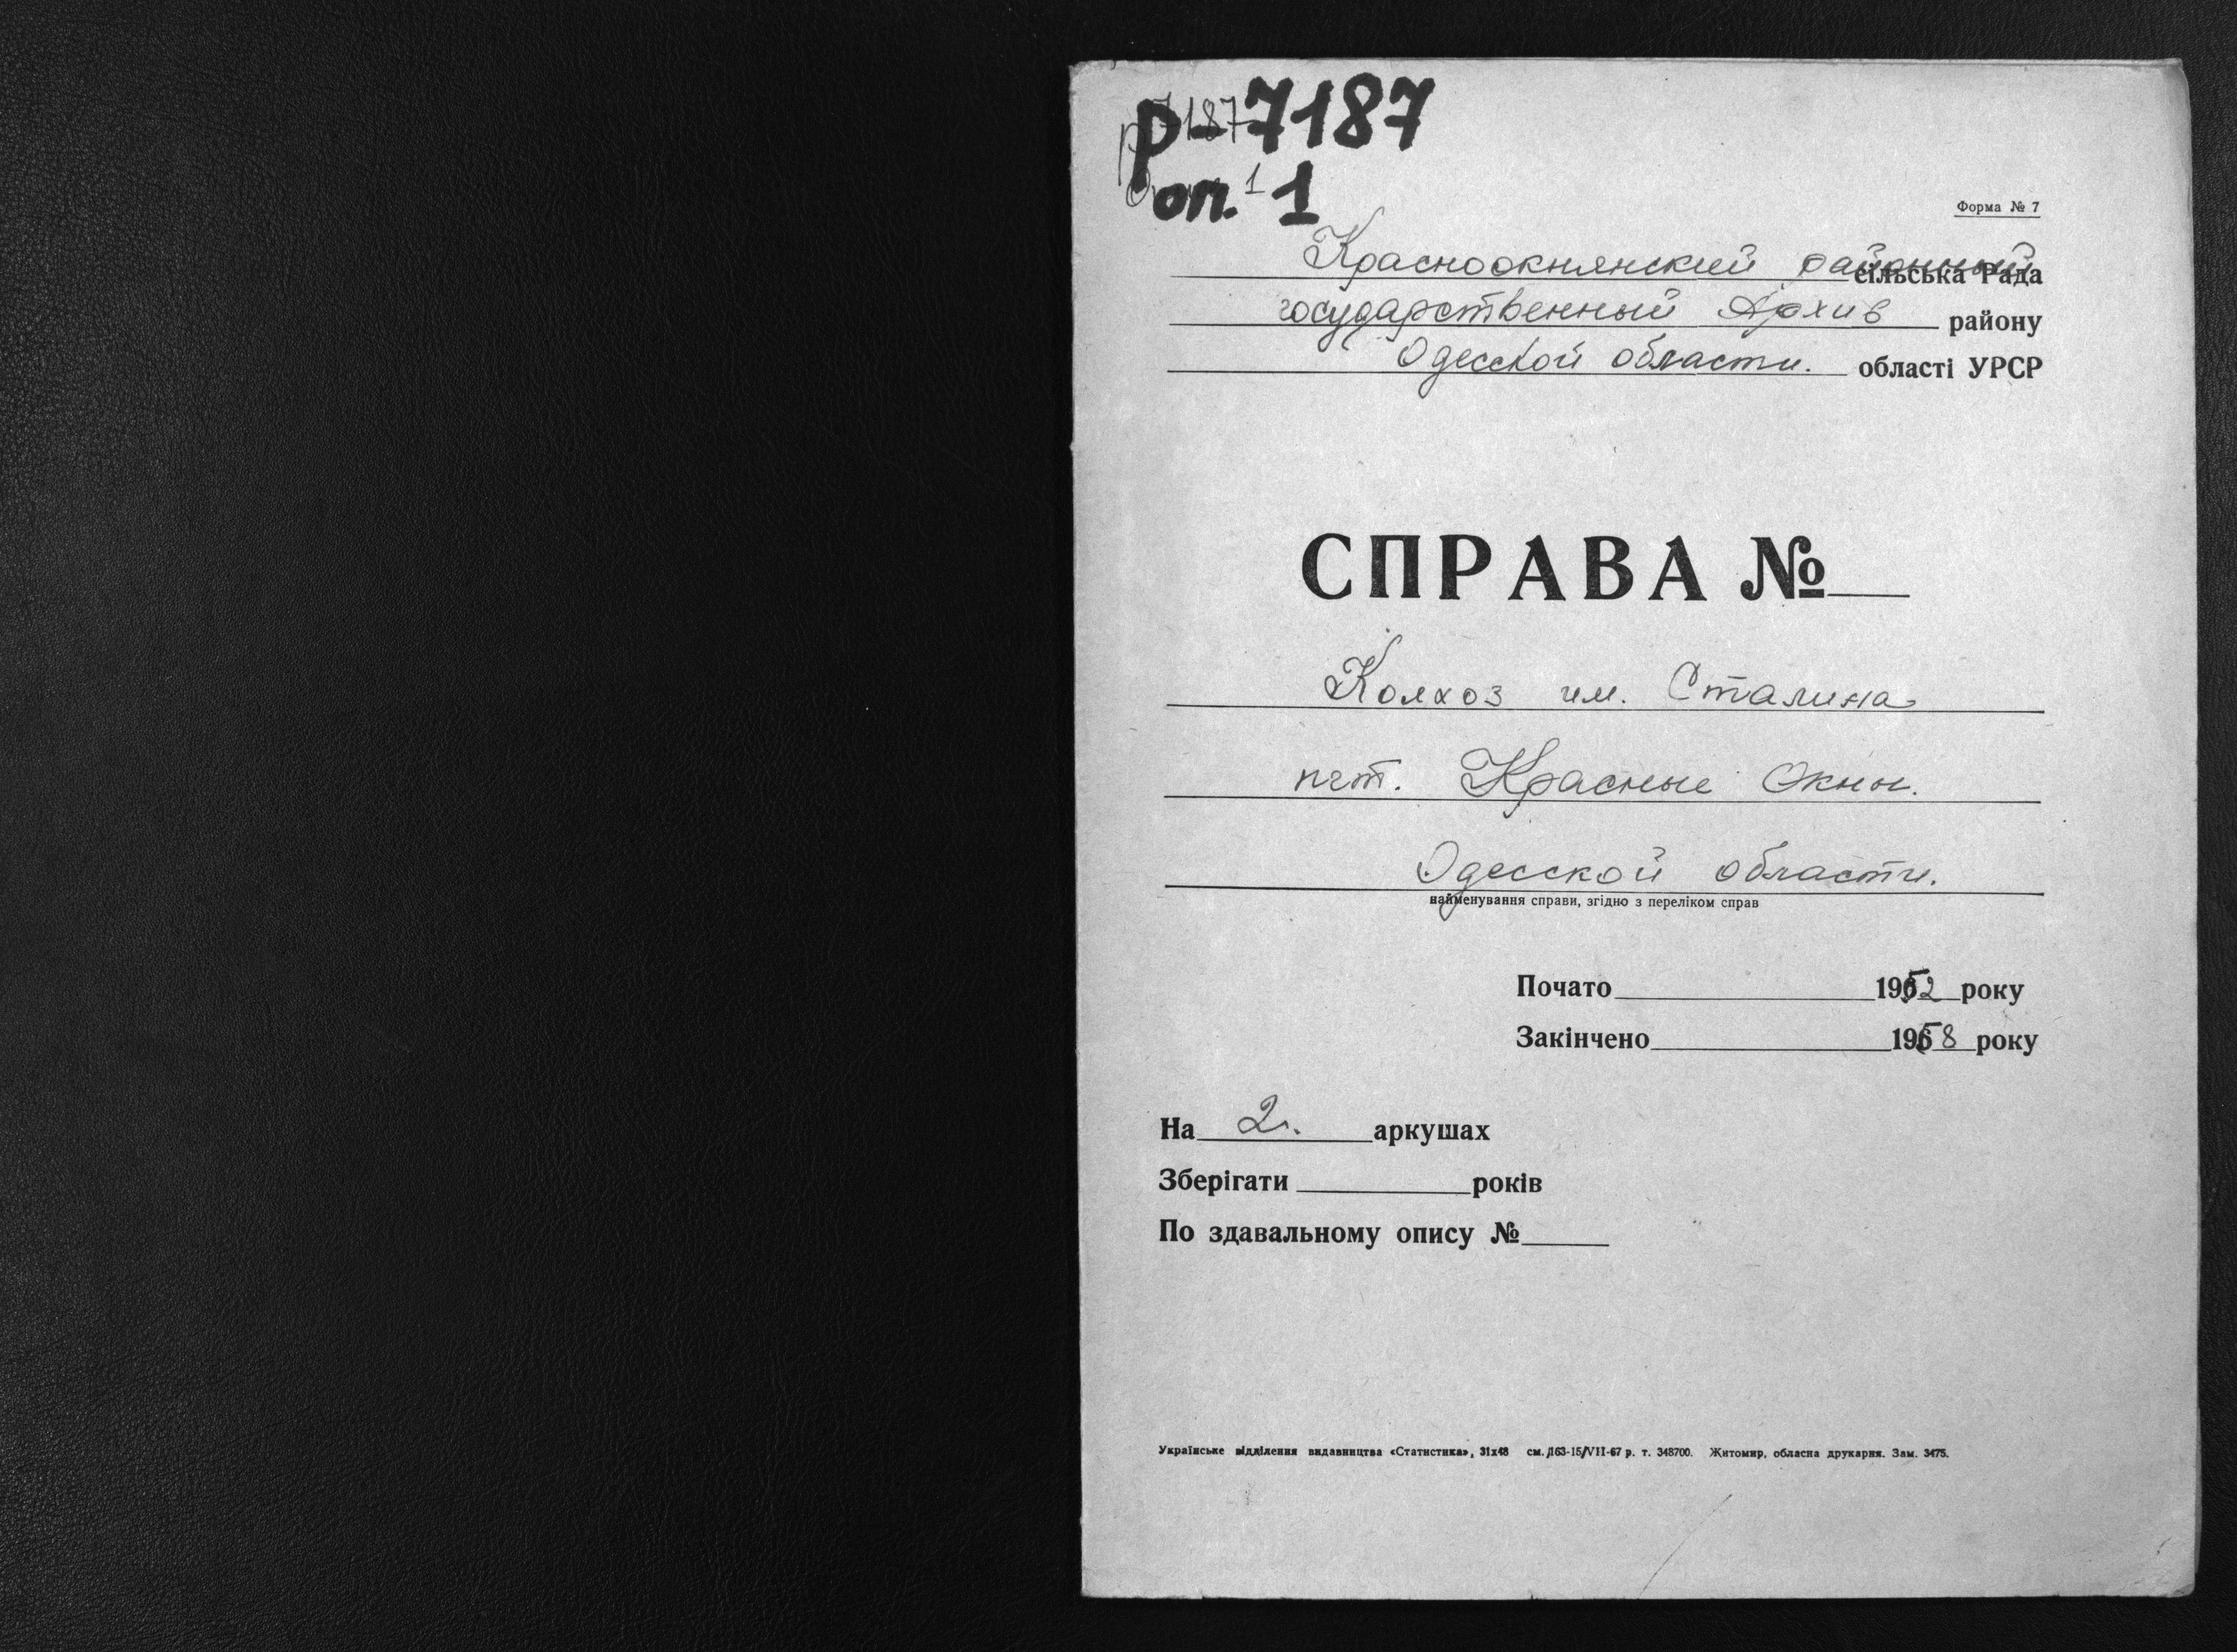 р-7187
оп. 1
Форма № 7
Красноокнянский районный сільська Рада
государственный Архив району
Одесской области. області УРСР
СПРАВА №
Колхоз им. Сталина
пгт. Красные Окны.
Одесской области.
найменування справи, згідно з переліком справ
Почато 1952 року
Закінчено 1958 року
На 2л. аркушах
Зберігати років
По здавальному опису №
Українське відділення видавництва «Статистика», 31х48 см. /163-15/VII-67 р. т. 348700. Житомир, обласна друкарня. Зам. 3475.